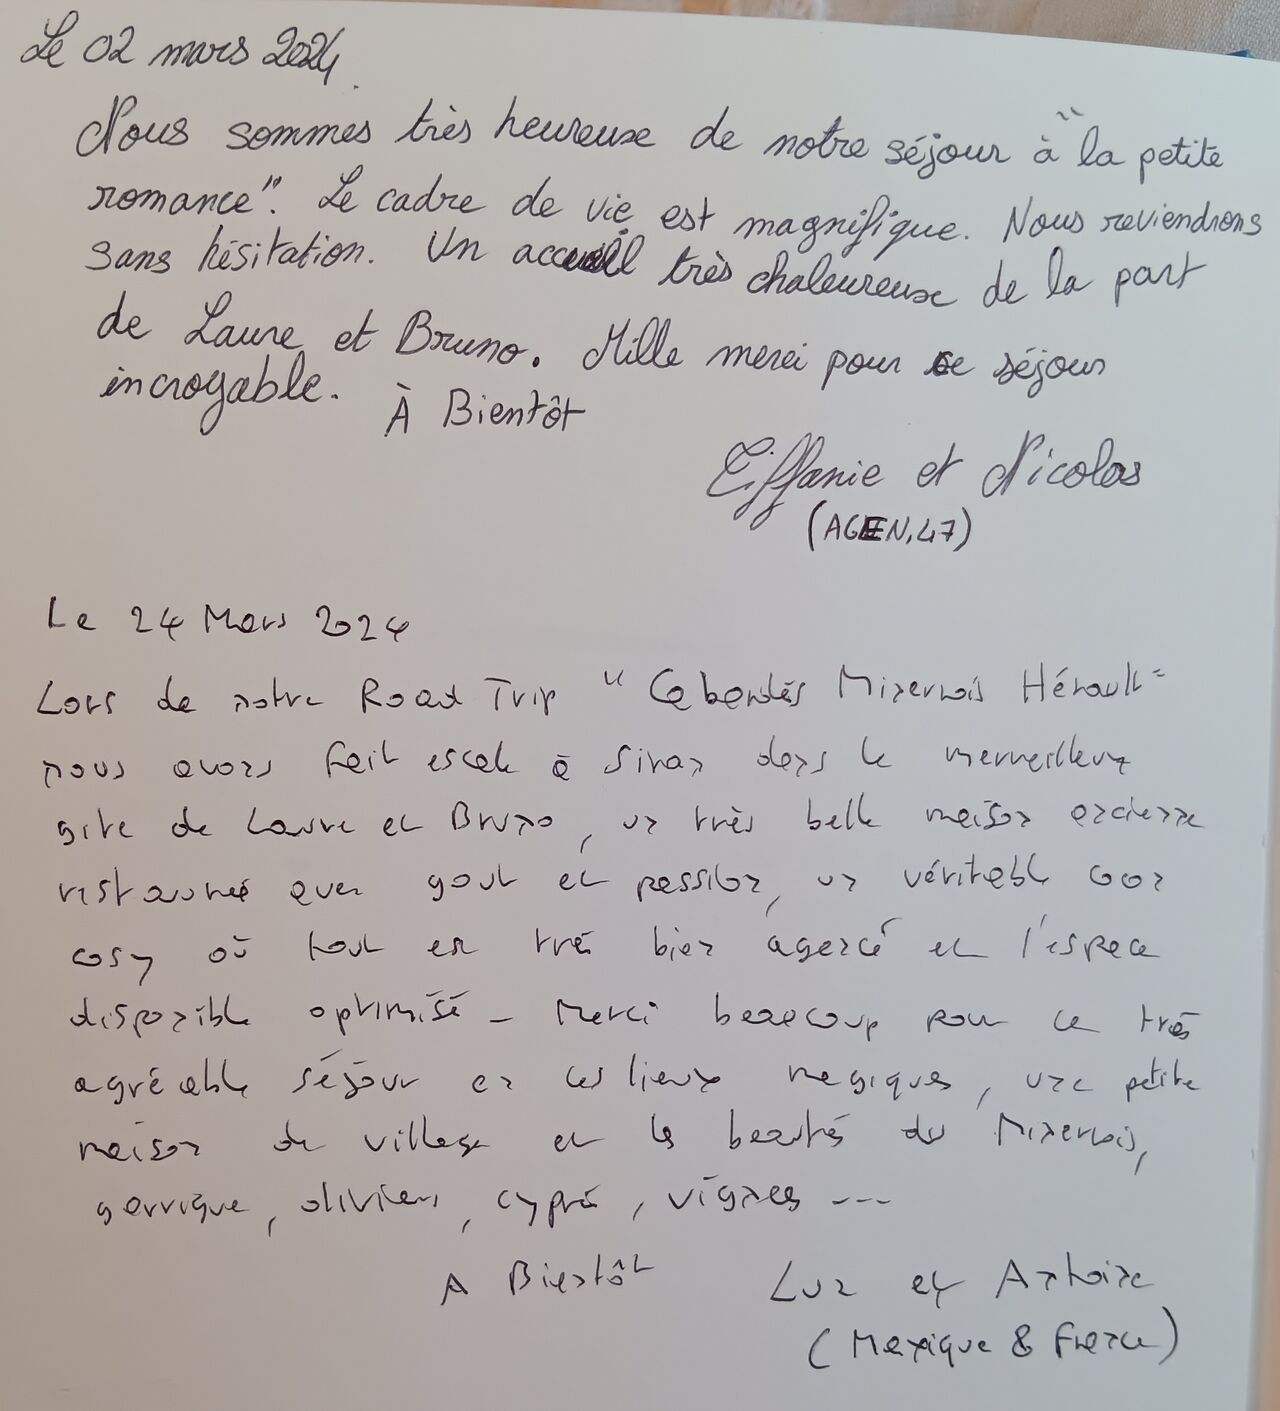 Le 02 mars 2024.
Nous sommes très heureuse de notre séjour à "la petite
romance". Le cadre de vie est magnifique. Nous reviendrons
sans hésitation. Un accueil très chaleureuse de la part
de Laure et Bruno. Mille merci pour ce séjour
incroyable. À Bientôt
Tiffanie et Nicolas
(AGEN, 47)
Le 24 Mars 2024
Lors de notre Road Trip "Cabardès Minervois Hérault"
nous avons fait escale à Siran dans le merveilleux
gite de Laure et Bruno, un très belle maison ancienne
restaurée avec gout et passion, un véritable coon
cosy où tout est très bien agencé et l'espace
disponible optimisé - Merci beaucoup pour ce très
agréable séjour en ces lieux magiques, une petite
maison de village et les beautés du Minervois,
garrigue, oliviers, cyprès, vignes ---
A Bientôt Luz et Antoine
(Mexique & France)